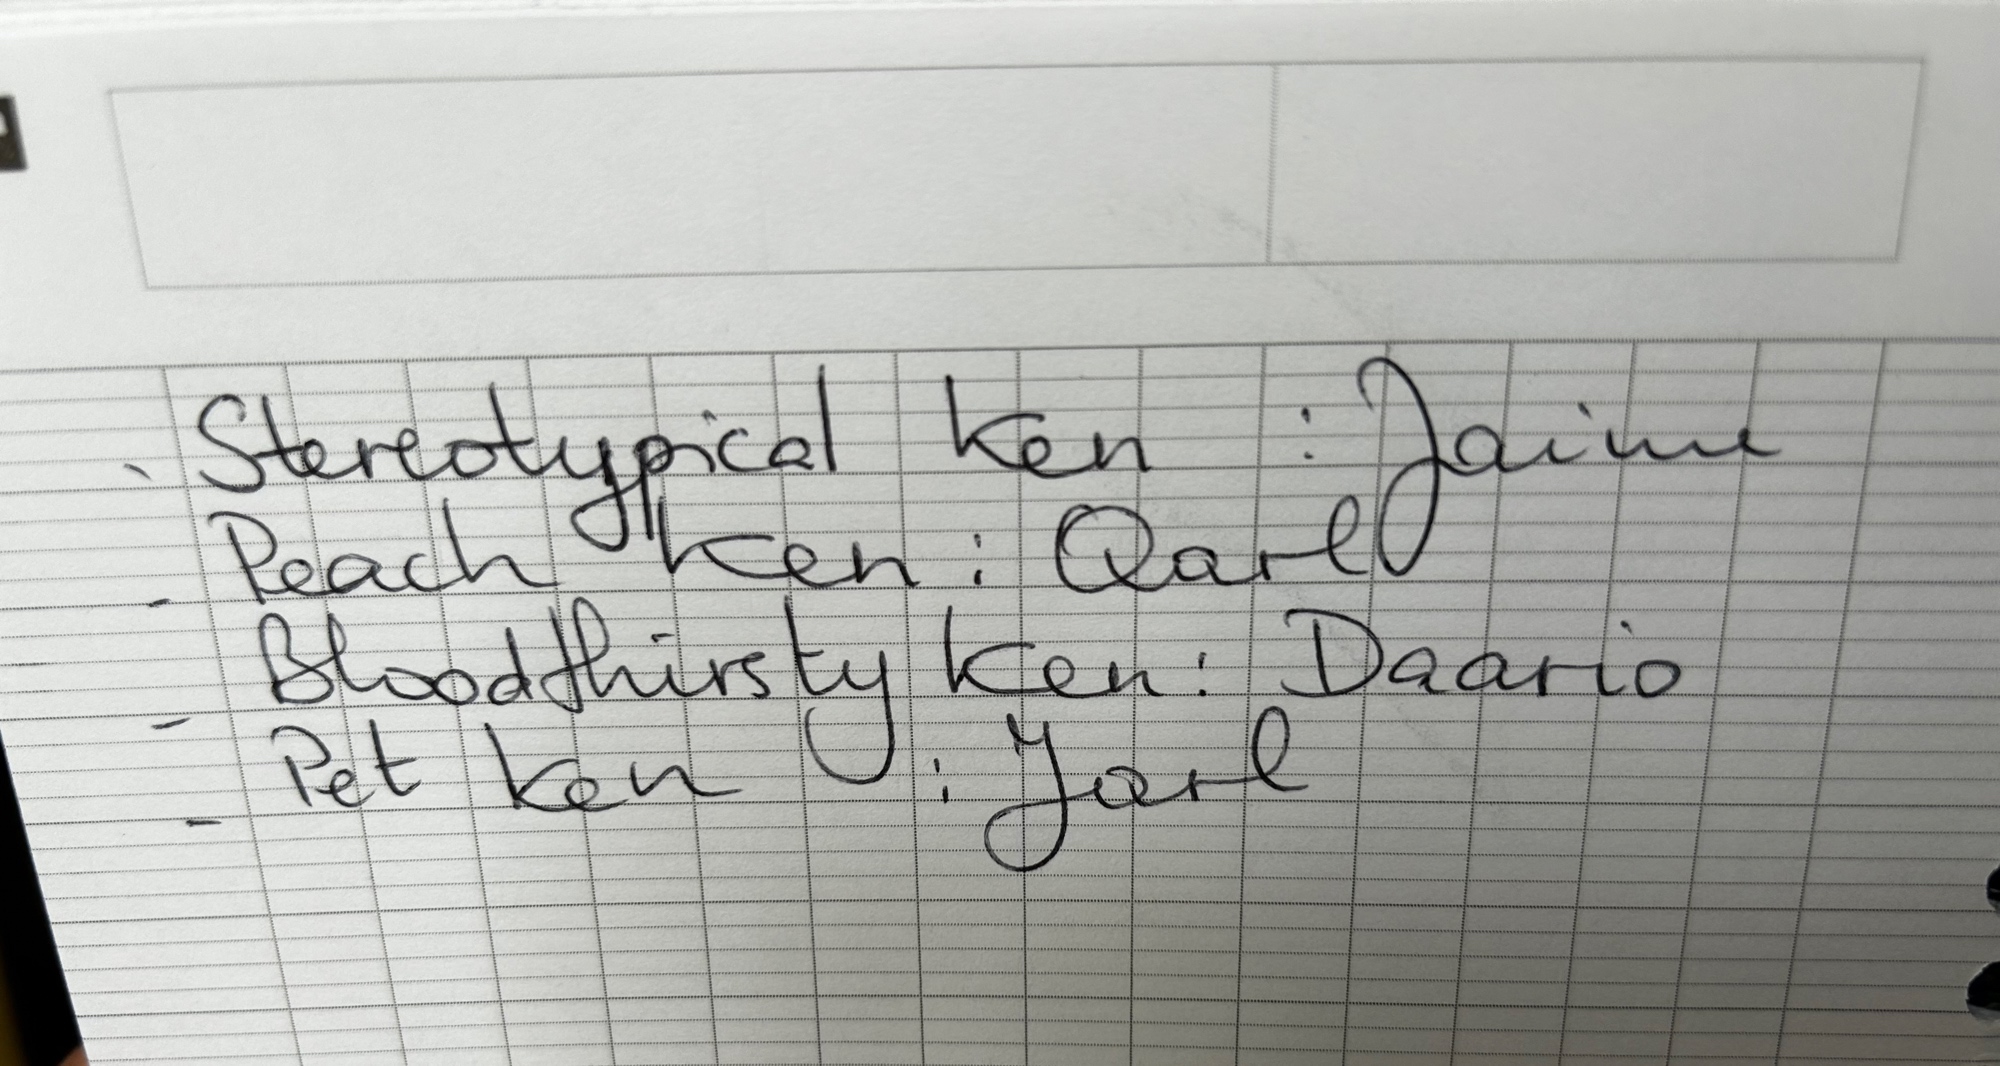 - Stereotypical Ken : Jaime
- Peach Ken : Qarl
- Bloodthirsty Ken : Daario
- Pet Ken : Jarl